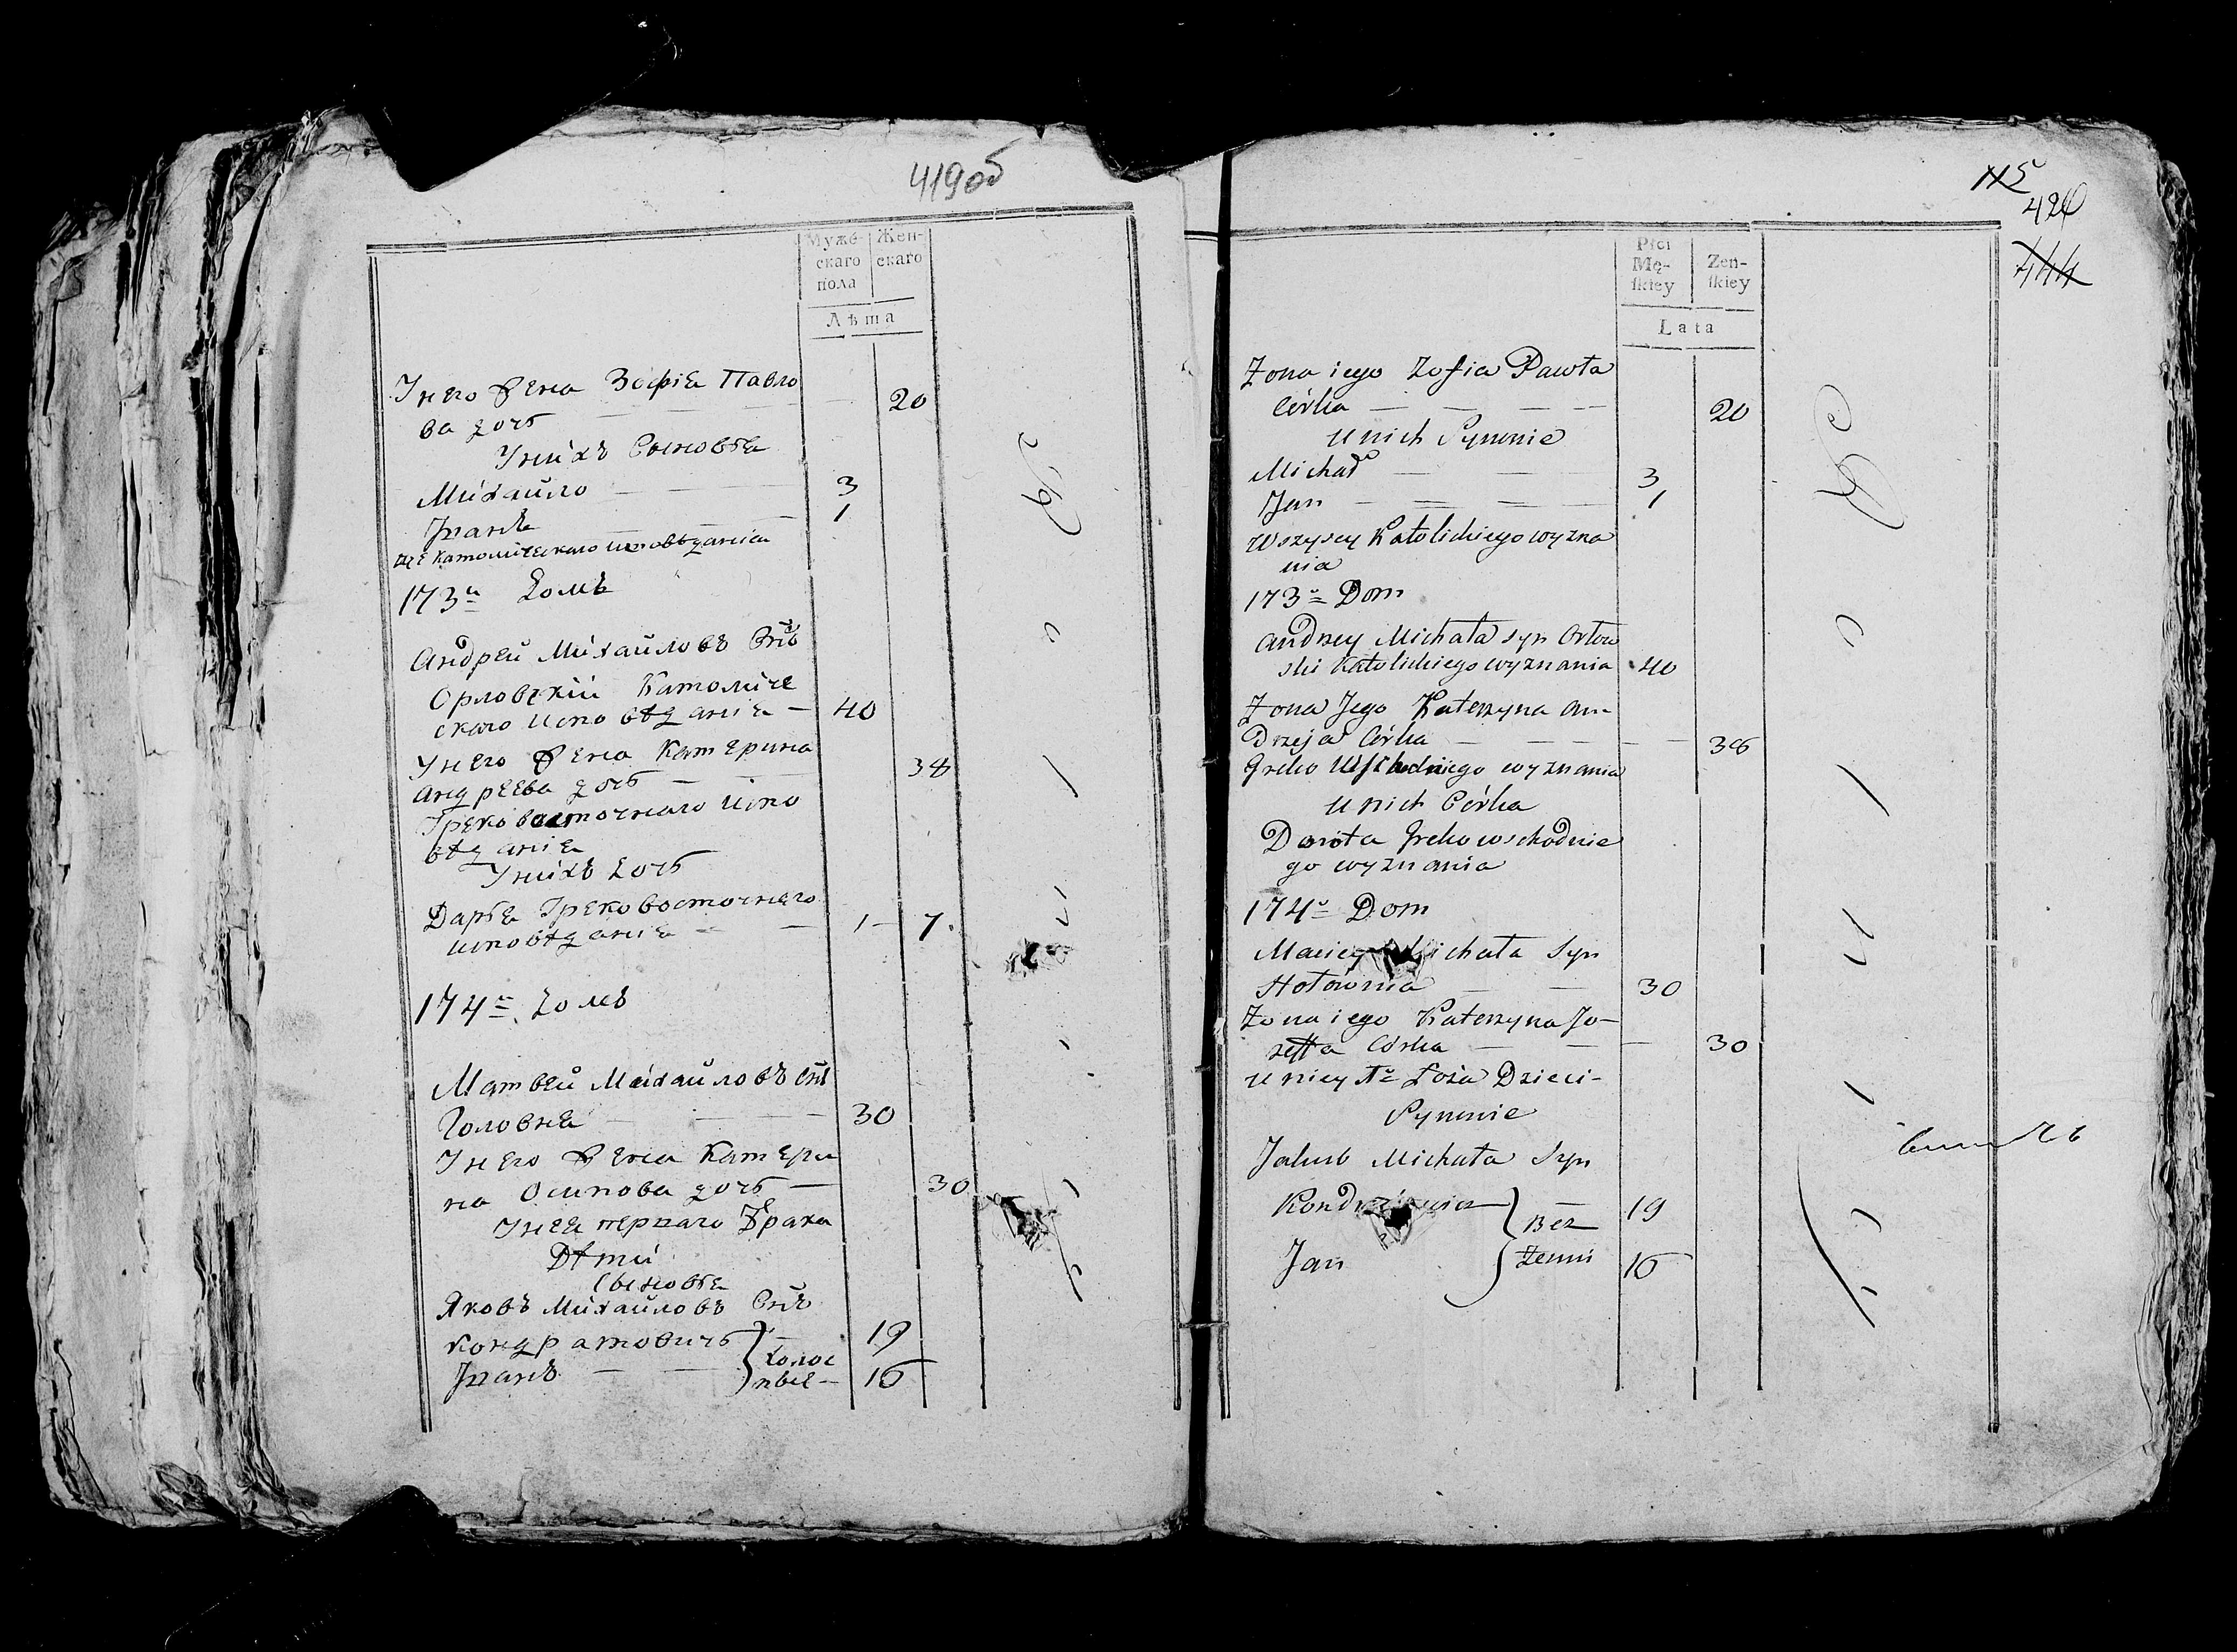 419об
Муже-
скаго
пола
Жен-
скаго
Лѣта
У него Жена Зофія Павло
ва дочь 20
У нихъ Сыновья
Михайло 3
Иванъ 1
Католическаго исповѣданія
173й Домъ
Андрей Михайловъ Снъ
Орловскій Католиче
скаго исповѣданія 40
У него Жена Катерина
Андреева дочь 38
Грековосточнаго испо
вѣданія
У нихъ Дочь
Дарья Грековосточнаго
исповѣданія 1 7.
174й Домъ
Матвей Михайловъ Снъ
Головня 30
У него Жена Катери
на Осипова дочь 30
У нея перваго Брака
Дѣти
Сыновья
Яковъ Михайловъ Снъ
Кондратовичь 19
Иванъ 16
Холос
тые
115
420
444
Płci
Mę-
ſkiey
Zen-
ſkiey
Lata
Zona iego Zofia Pawła
Córka 20
u nich Synowie
Michał 3
Jan 1
Wszyscy Katolickiego wyzna
nia
173. Dom
Andrzey Michała syn Orłow
ski Katolickiego wyznania 40
Zona Jego Katerzyna An-
Drzeja Córka 38
Greko Wschodniego wyznania
u nich Córka
Dorota Greko wschodnie
go wyznania
174. Dom
Maciey Michała Syn
Hołownia 30
Zona iego Katerzyna Jo-
zeffa Córka 30
u niey 1go Łoża Dzieci-
Synowie
Jakub Michała Syn
Kondratowicz 19
Jan 16
Bez
żenni